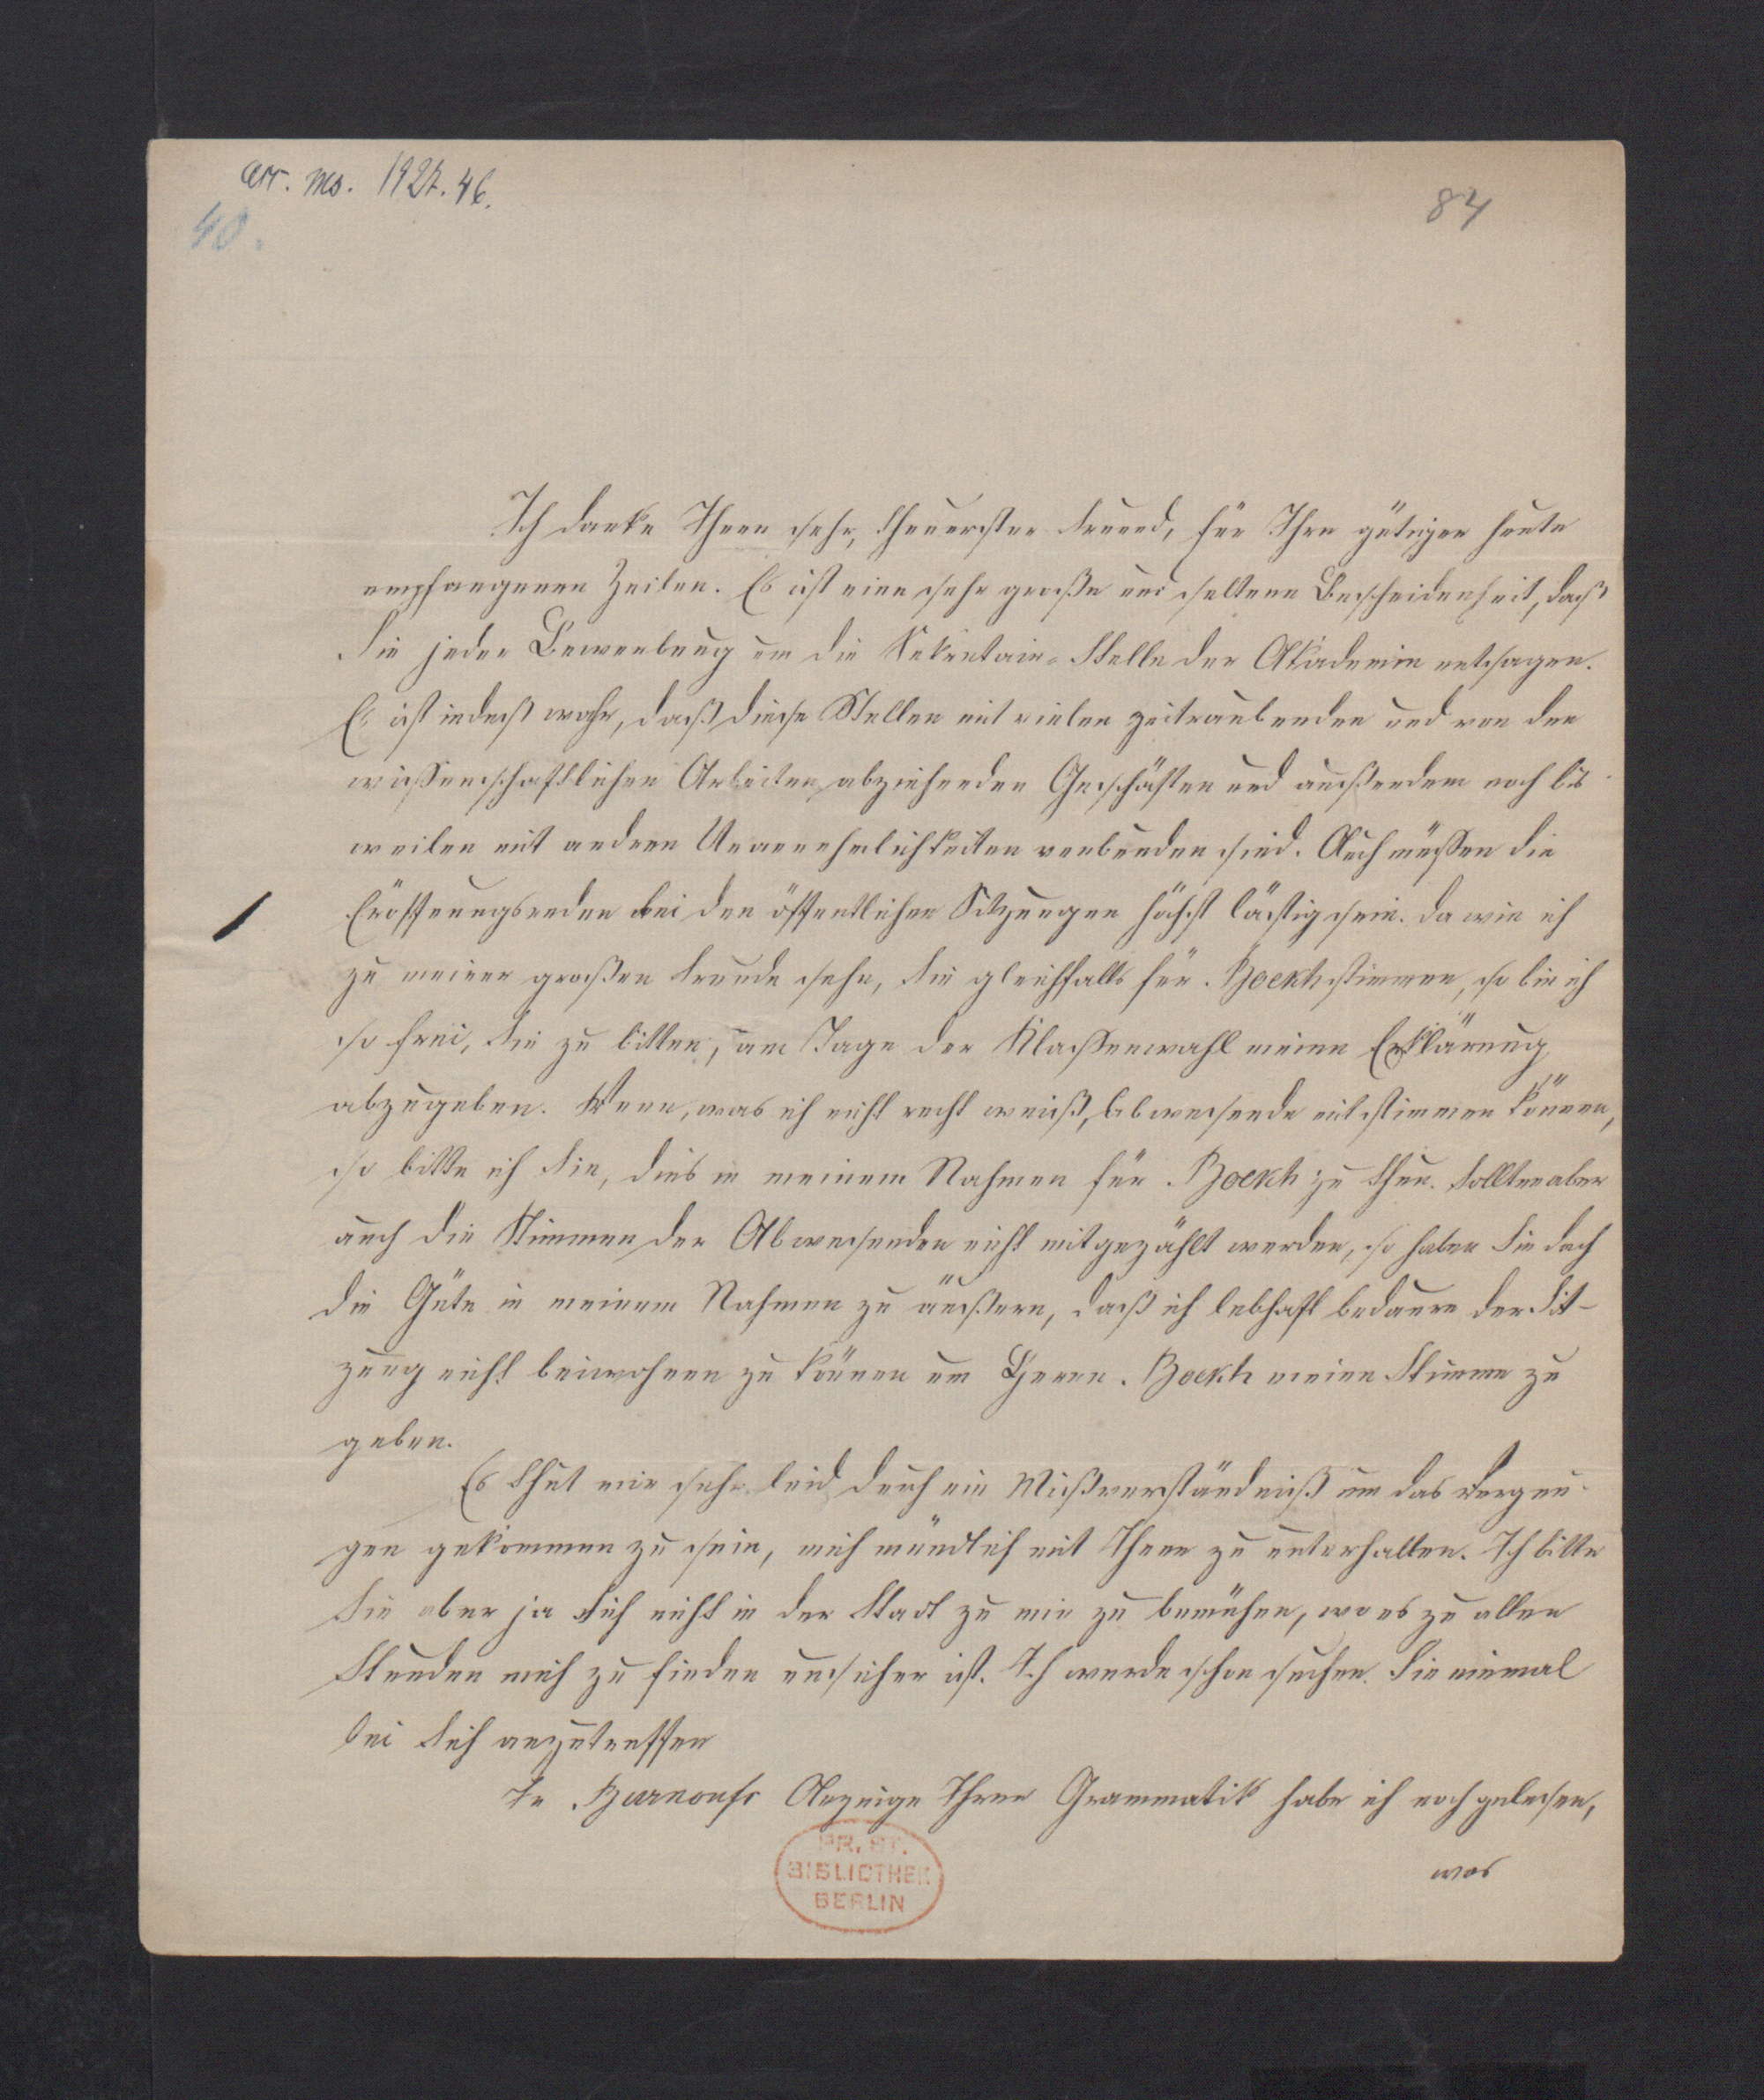 acc. ms. 1927.46.
40.
84
Ich danke Ihnen sehr, theuerster Freund, für Ihre gütigen heute
empfangenen Zeilen. Es ist eine sehr große und seltene Bescheidenheit, daß
Sie jeder Bewerbung um die Sekretair-Stelle der Akademie entsagen.
Es ist indeß wahr, daß diese Stellen mit vielen zeitraubenden und von den
wissenschaftlichen Arbeiten abziehenden Geschäften und außerdem noch bis
weilen mit andren Unannehmlichkeiten verbunden sind. Auch müssen die
Eröffnungsreden bei den öffentlichen Sitzungen höchst lästig sein. Da wie ich
zu meiner großen Freude sehe, Sie gleichfalls für Boeckh stimmen, so bin ich
so frei, Sie zu bitten, am Tage der Klassenwahl meine Erklärung
abzugeben. Wenn, was ich nicht recht weiß, Abwesende mitstimmen können,
so bitte ich Sie, dies in meinem Nahmen für Boekh zu thun. Sollten aber
auch die Stimmen der Abwesenden nicht mitgezählt werden, so haben Sie doch
die Güte in meinem Nahmen zu äußern, daß ich lebhaft bedaure der Sit-
zung nicht beiwohnen zu können um Herrn Boekh meine Stimme zu
geben.
Es thut mir sehr leid durch ein Mißverständniß um das Vergnü-
gen gekommen zu sein, mich mündlich mit Ihnen zu unterhalten. Ich bitte
Sie aber ja Sich nicht in der Stadt zu mir zu bemühen, wo es zu allen
Stunden mich zu finden unsicher ist. Ich werde schon suchen Sie einmal
bei Sich anzutreffen
In Burnoufs Anzeige Ihrer Grammatik habe ich noch gelesen,
was
PR. ST.
BIBLIOTHEK
BERLIN